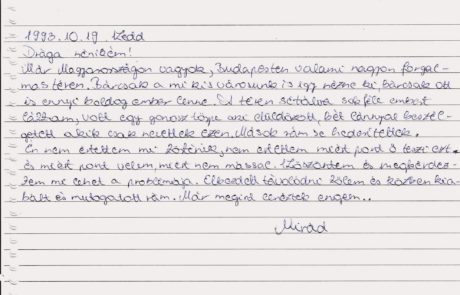 1993.10.19. kedd
Drága néniném!
Már Magyarországon vagyok, Budapesten valami nagyon forgal-
mas téren. Bárcsak a mi kis városunk is így nézne ki, bárcsak ott
is ennyi boldog ember lenne. A téren sétálva sokféle embert
láttam, volt egy gonosz törpe aki üldözött, két lánnyal beszél-
getett akik csak nevettek ezen. Mások rám se hederítettek.
Én nem értettem mi történik, nem értettem miért pont ő teszi ezt.
És miért pont velem, miért nem mással. Köszöntem és megkérdez-
tem mi lehet a problémája. Elkezdett távolodni tőlem és közben kia-
bált és mutogatott rám. Már megint cinéztek engem..
Mirád